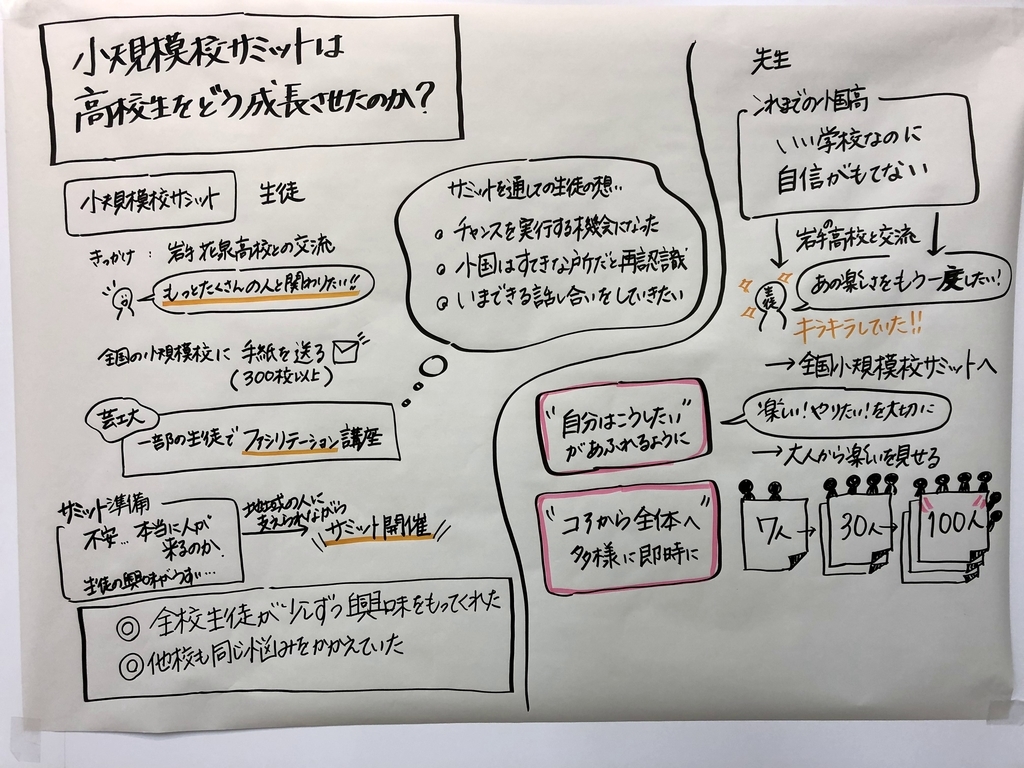 小規模校サミットは
高校生をどう成長させたのか?
小規模校サミット
生徒
きっかけ : 岩手 花泉高校との交流
もっとたくさんの人と関わりたい!!
全国の小規模校に 手紙を送る
(300校以上)
芸工大
一部の生徒で ファシリテーション講座
サミット準備
不安… 本当に人が
来るのか
生徒の興味がうすい…
地域の人に
支えられながら
サミット開催
◎ 全校生徒が少しずつ興味をもってくれた
◎ 他校も同じ悩みをかかえていた
サミットを通しての生徒の想い
チャンスを実行する機会になった
小国はすてきな所だと再認識
いまできる話し合いをしていきたい
先生
これまでの小国高
いい学校なのに
自信がもてない
岩手の高校と交流
生徒
あの楽しさをもう一度したい!
キラキラしていた!!
→ 全国小規模校サミットへ
"自分はこうしたい"
があふれるように
楽しい!やりたい!を大切に
→ 大人から楽しいを見せる
"コアから全体へ"
多様に即時に
7人 → 30人 → 100人